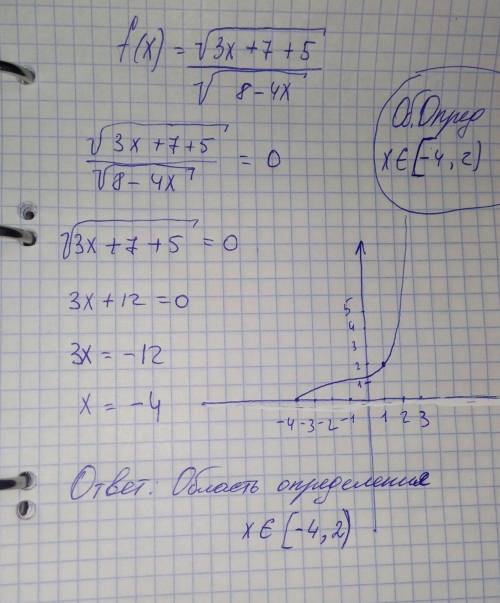 f(x) = √(3x + 7 + 5) / √(8 - 4x)
√(3x + 7 + 5) / √(8 - 4x) = 0
√(3x + 7 + 5) = 0
3x + 12 = 0
3x = -12
x = -4
Об. Опред
x ∈ [-4, 2)
5
4
3
2
1
-4 -3 -2 -1 1 2 3
Ответ: Область определения
x ∈ [-4, 2)